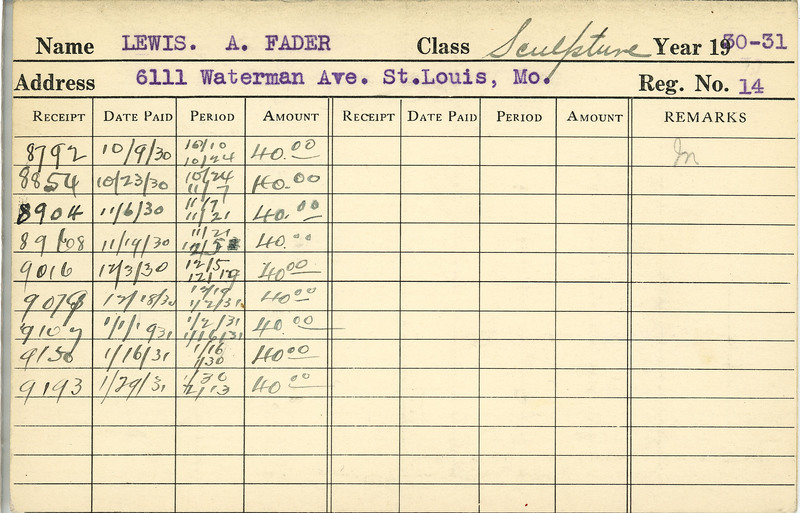 Name LEWIS. A. FADER Class Sculpture Year 1930-31
Address 6111 Waterman Ave. St.Louis, Mo. Reg. No. 14
RECEIPT DATE PAID PERIOD AMOUNT RECEIPT DATE PAID PERIOD AMOUNT REMARKS
8792 10/9/30 10/10 10/24 40.00 M
8854 10/23/30 10/24 11/7 40.00
8904 11/6/30 11/7 11/21 40.00
8968 11/19/30 11/21 40.00
9016 12/3/30 12/5 12/19 4000
9078 12/18/30 12/19 1/2/31 4000
9107 1/1/1931 1/2/31 1/16/31 40.00
9150 1/16/31 1/16 1/30 4000
9193 1/29/31 1/30 2/13 40.00